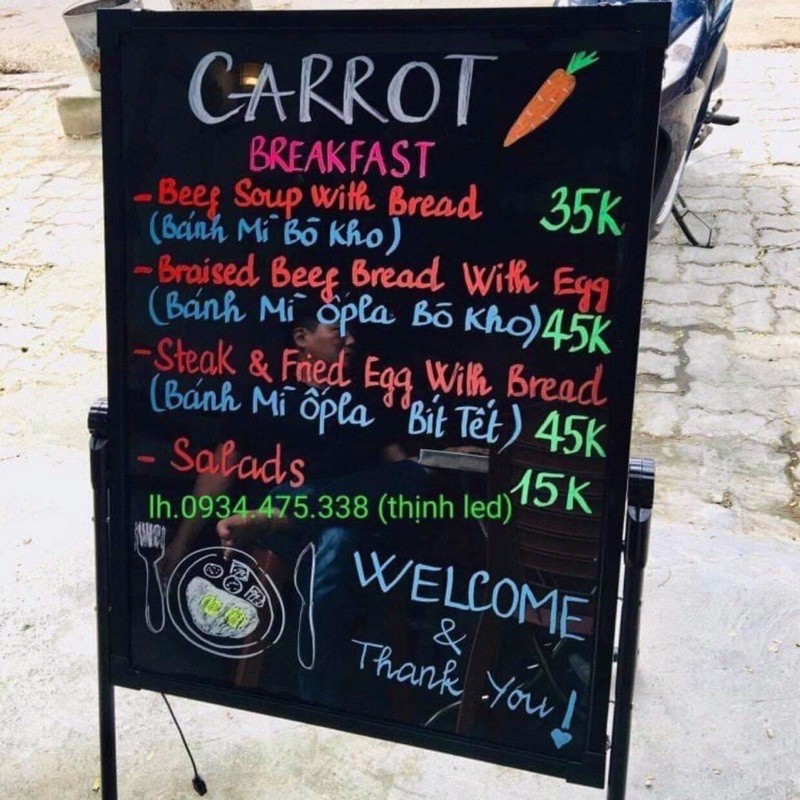 CARROT
BREAKFAST
- Beef Soup With Bread 35K
(Bánh Mì Bò Kho)
- Braised Beef Bread With Egg
(Bánh Mì Ốpla Bò Kho) 45K
- Steak & Fried Egg With Bread
(Bánh Mì Ốpla Bít Tết) 45K
- Salads 15K
lh.0934.475.338 (thịnh led)
WELCOME
&
Thank You!